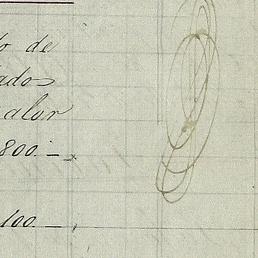 de
ados
alor
800.—
100.—